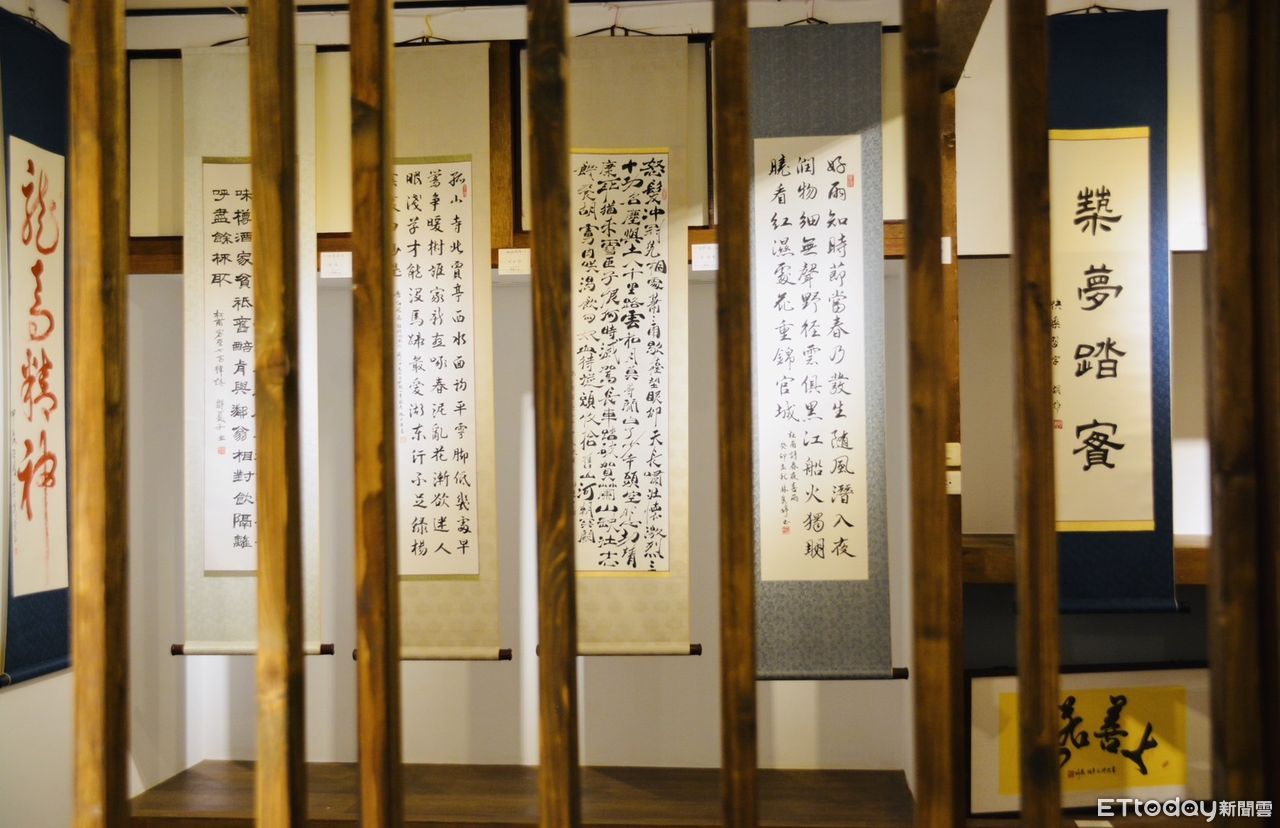 龍馬精神
味樽酒家貧祗舊醅肯與鄰翁相對飲隔籬
呼盡餘杯取
杜甫客至七言律詩
孤山寺北賈亭西水面初平雲腳低幾處早
鶯爭暖樹誰家新燕啄春泥亂花漸欲迷人
眼淺草才能沒馬蹄最愛湖東行不足綠楊
怒髮沖冠憑欄處蕭蕭雨歇擡望眼仰天長嘯壯懷激烈三
十功名塵與土八千里路雲和月莫等閒白了少年頭空悲切靖
康恥猶未雪臣子恨何時滅駕長車踏破賀蘭山缺壯志
飢餐胡虜肉笑談渴飲匈奴血待從頭收拾舊山河朝天闕
好雨知時節當春乃發生隨風潛入夜
润物細無聲野徑雲俱黑江船火獨明
曉看紅濕處花重錦官城
杜甫詩春夜喜雨
築夢踏實
善若
ETtoday新聞雲